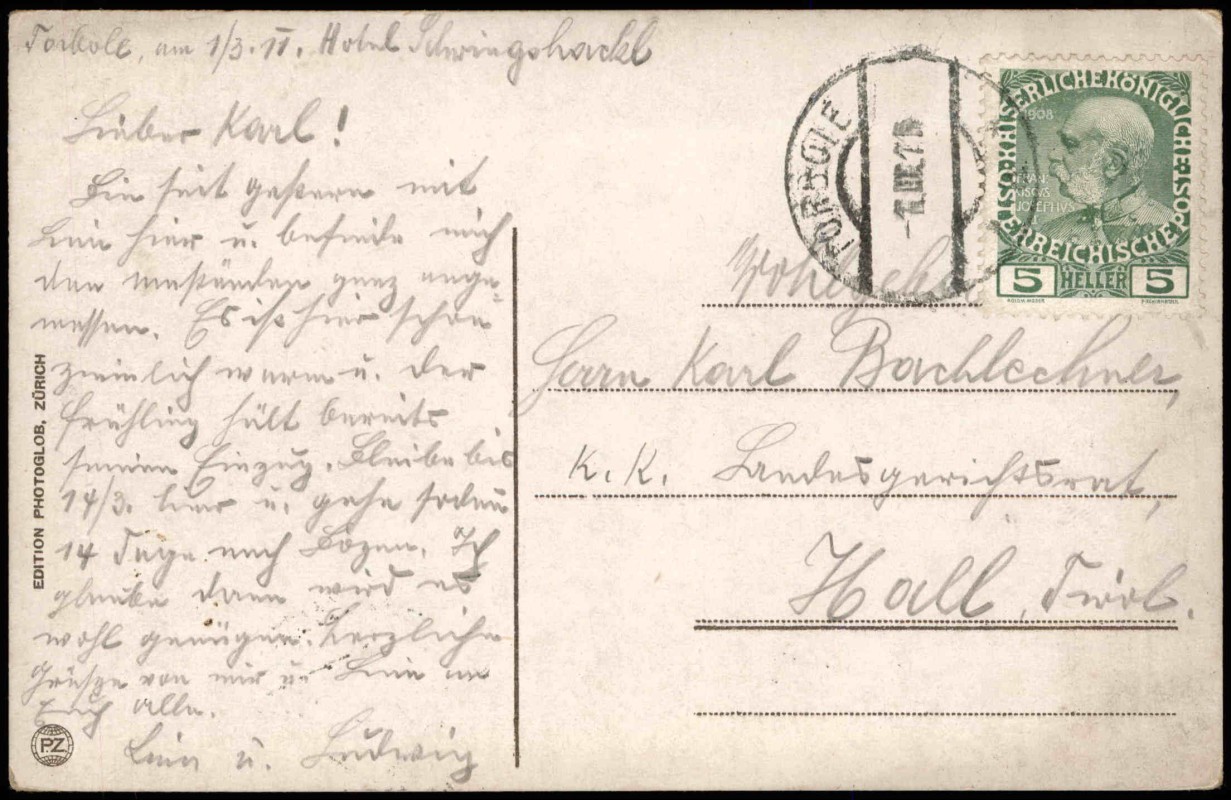 Torbole, am 1/3. 11. Hotel Schwingshackl
Lieber Karl!
Bin seit gestern mit
hier u. befinde mich
den Umständen ganz ange-
messen. Es ist hier schon
ziemlich warm u. der
Frühling hält bereits
seinen Einzug. Bleibe bis
14/3. hier u. gehe sodann
14 Tage nach Bozen. Ich
glaube dann wird es
wohl genügen. Herzliche
Grüsze von mir u. an
Euch alle.
u. Ludwig
EDITION PHOTOGLOB, ZÜRICH
PZ
TORBOLE
-1.III.11
KAISERLICHE KÖNIGLICHE ÖSTERREICHISCHE POST
1908
FRAN
CISCVS
JOSEPHVS
5 HELLER 5
Herrn Karl Bachlechner,
k. k. Landesgerichtsrat,
Hall, Tirol.